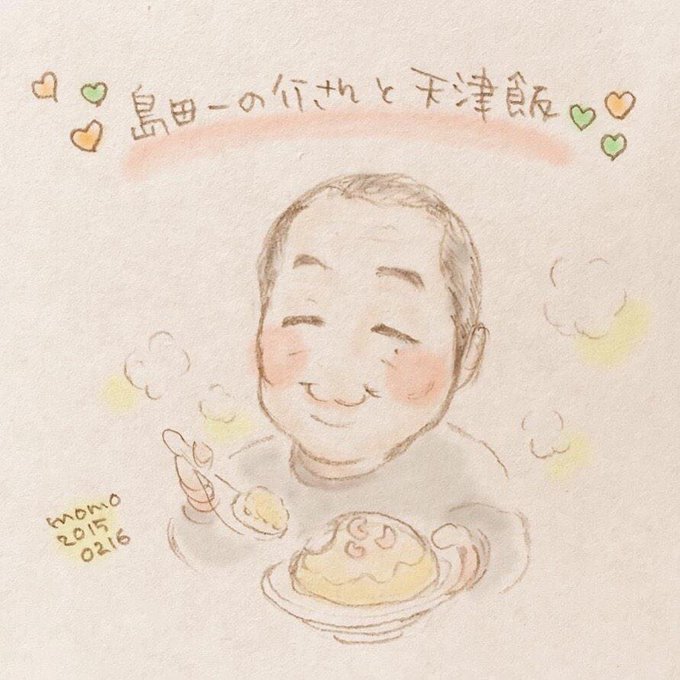 島田一の介さんと天津飯
momo
2015
0216